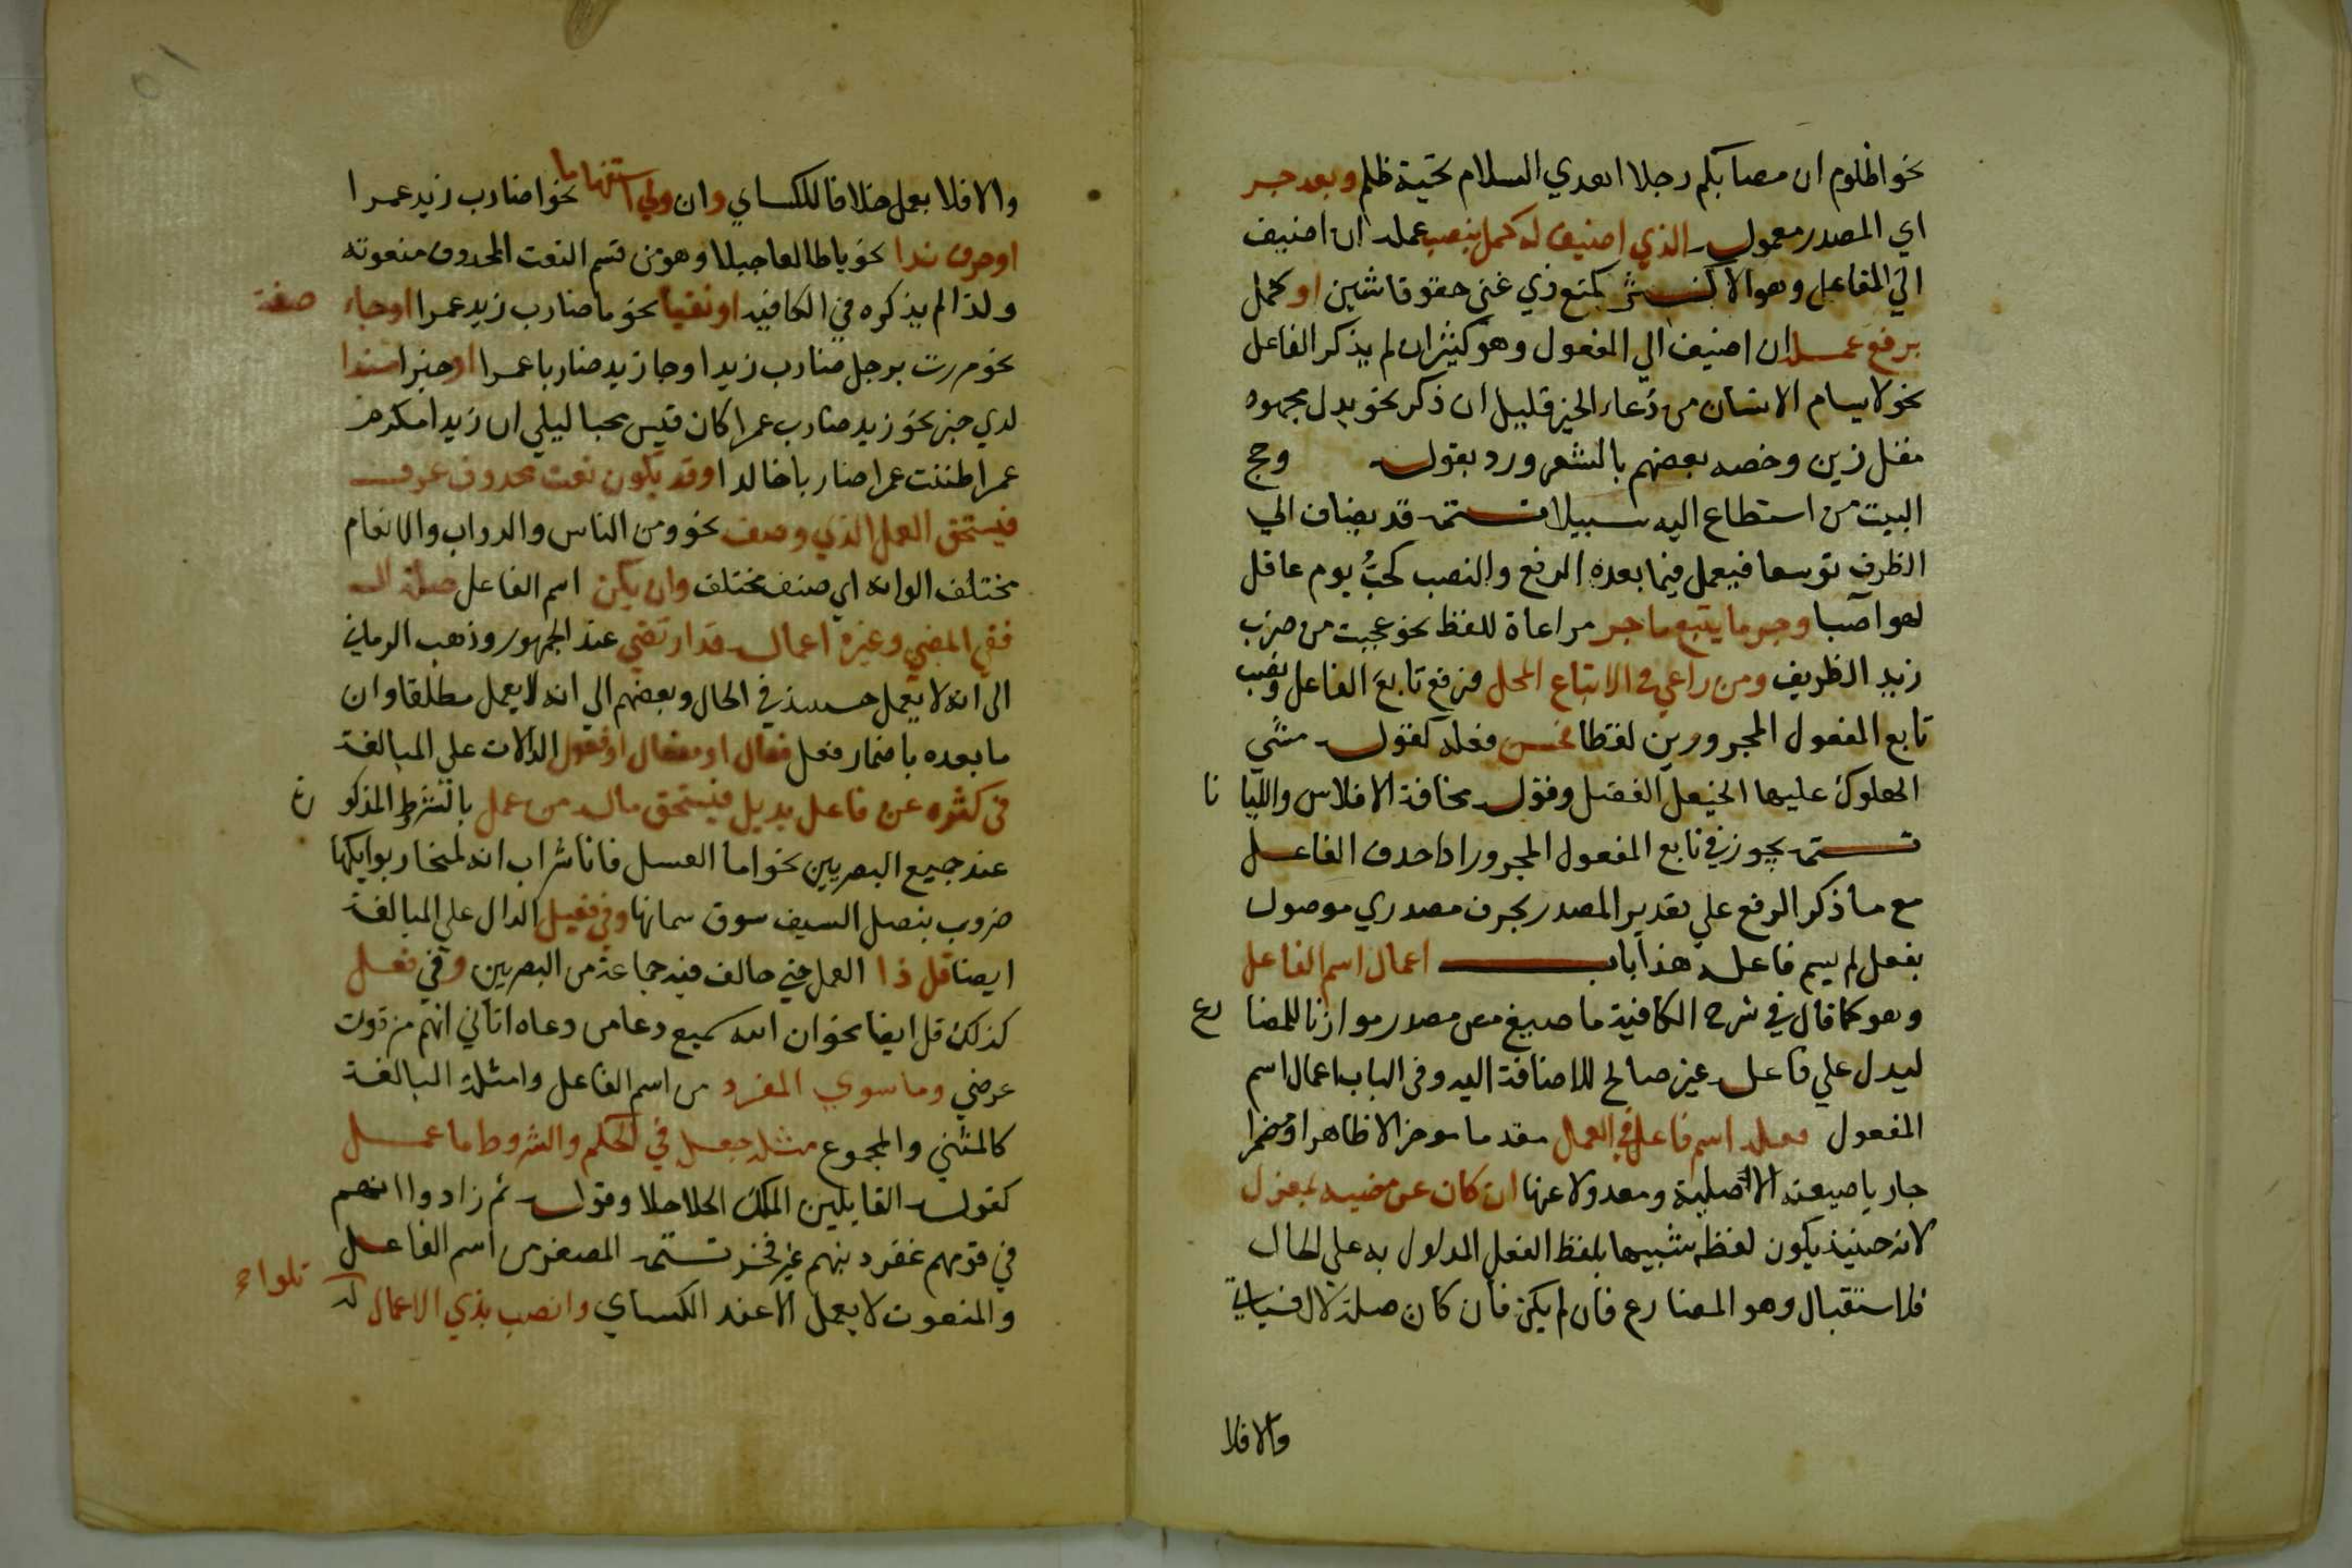 نحو اظلوم ان مصابكم رجلا اهدي السلام تحية ظلم وبعد جر
اي المصدر معموله الذي اضيف له كمل بنصب عمله ان اضيف
الي الفاعل وهو الاكثر كمنع ذي غني حقوقا شين او كمل
برفع عمله ان اضيف الي المفعول وهو كثير ان لم يذكر الفاعل
نحو لا يسام الانسان من دعاء الخير قليل ان ذكر نحو بذل مجهود
مقل زين وخصه بعضهم بالشعر ورد بقوله وحج
البيت من استطاع اليه سبيلا تتمة قد يضاف الي
الظرف توسعا فيعمل فيما بعده الرفع والنصب كحب يوم عاقل
لهوا صبا وجر ما يتبع ما جر مراعاة للفظ نحو عجبت من ضرب
زيد الظريف ومن راعي في الاتباع المحل فرفع تابع الفاعل ونصب
تابع المفعول المجرورين لفظا فحسن فعله كقوله مشي
الهلوك عليها الخيعل الفضل وقوله مخافة الافلاس والليا نا
تتمة يجوز في تابع المفعول المجرور اذا حذف الفاعل
مع ما ذكر الرفع علي تقدير المصدر بحرف مصدري موصول
بفعل لم يسم فاعله هذا باب اعمال اسم الفاعل
وهو كما قال في شرح الكافية ما صيغ من مصدر موازنا للمضا رع
ليدل علي فاعله غير صالح للاضافة اليه وفي الباب اعمال اسم
المفعول كفعله اسم فاعل في العمل مقدما وموخرا ظاهرا ومضمرا
جاريا صيغته الاصلية ومعدولا عنها ان كان عن مضيه بمعزل
لانه حينيذ يكون لفظه شبيها بلفظ الفعل المدلول به علي الحال
فالاستقبال وهو المضارع فان لم يكن فان كان صلة لال فسياتي
والا فلا
والا فلا يعمل خلافا للكساي وان ولي استفهاما نحو اضارب زيد عمرا
او حرف ندا نحو يا طالعا جبلا وهو من قسم النعت المحذوف منعوته
ولذا لم يذكره في الكافيه او نفيا نحو ما ضارب زيد عمرا او جاء صفة
نحو مررت برجل ضارب زيدا وجا زيد ضاربا عمرا او خبرا مسندا
لذي خبر نحو زيد ضارب عمرا كان قيس محبا ليلي ان زيدا مكرم
عمرا ظننت عمرا ضاربا خالدا وقد يكون نعت محذوف عرف
فيستحق العمل الذي وصف نحو ومن الناس والدواب والانعام
مختلف الوانه اي صنف مختلف وان يكن اسم الفاعل صلة ال
ففي المضي وغيره اعماله قد ارتضي عند الجمهور وذهب الرماني
الي انه لا يعمل حينيذ في الحال وبعضهم الي انه لا يعمل مطلقا وان
ما بعده باضمار فعل فعال او مفعال او فعول الدالات علي المبالغة
في كثره عن فاعل بديل فيستحق ماله من عمل بالشرط المذكو ر
عند جميع البصريين نحو اما العسل فانا شراب انه لمنحار بوايكها
ضروب بنصل السيف سوق سمانها وفي فعيل الدال علي المبالغة
ايضا قل ذا العمل حتي خالف فيه جماعة من البصريين وفي فعل
كذلك قل ايضا نحو ان الله سميع دعا من دعاه اتاني انهم مزقون
عرضي وما سوي المفرد من اسم الفاعل وامثلة البالغة
كالمثني والمجموع مثله جعل في الحكم والشروط ما عمل
كقوله القايلين الملك الحلاحلا وقوله ثم زادوا انهم
في قومهم غفر ذنبهم غير فخر تتمة المصغر من اسم الفاعل
والمنعوت لا يعمل الا عند الكساي وانصب بذي الاعمال تلوا